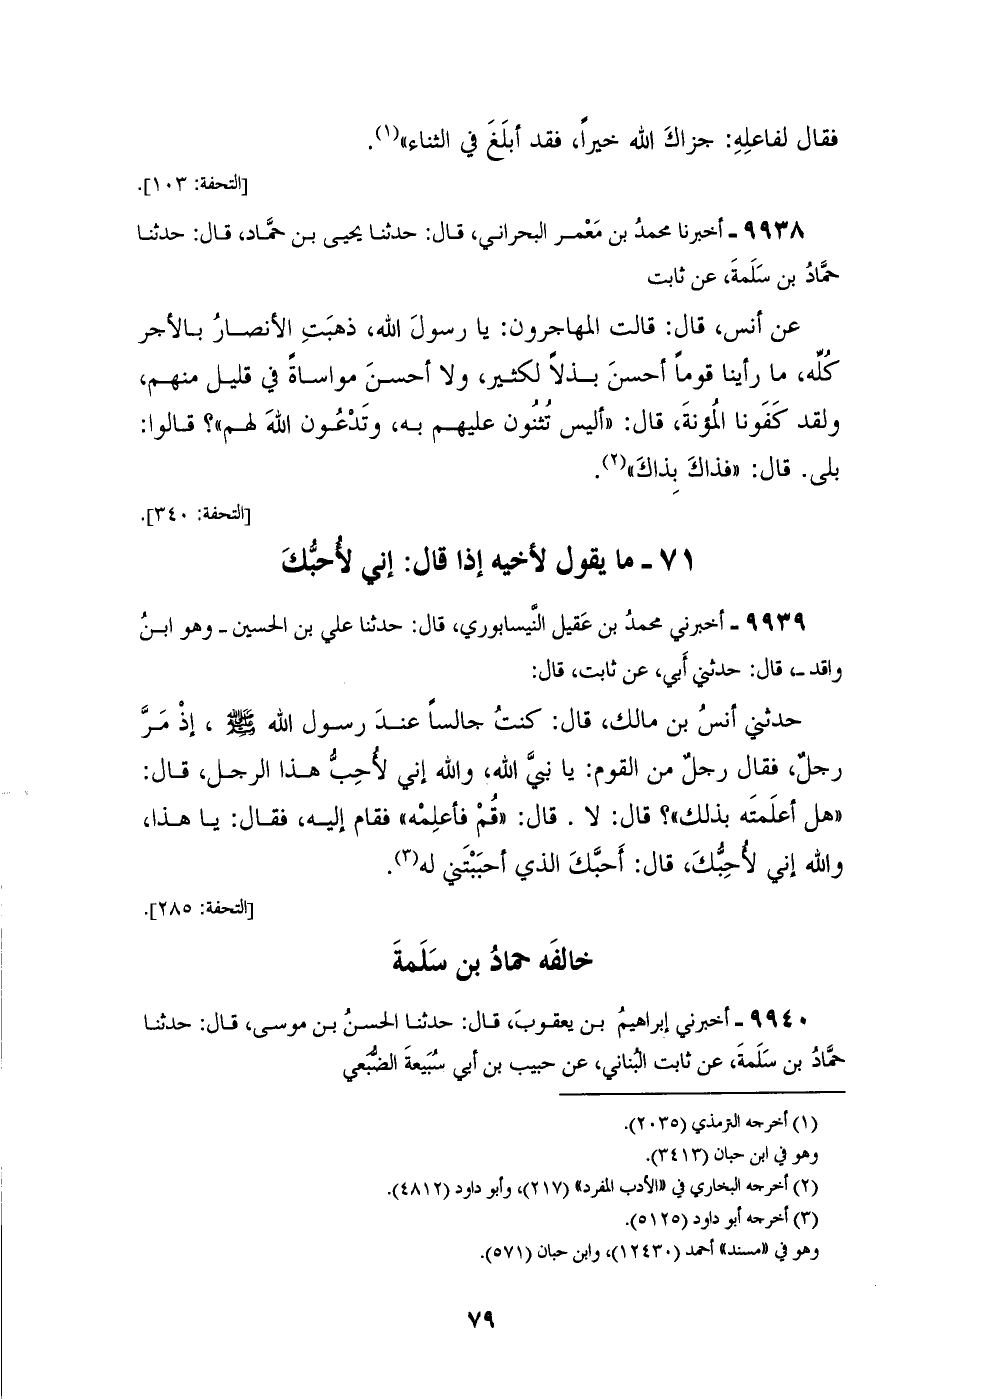 فقال لفاعلِهِ: جزاكَ الله خيراً، فقد أبلَغَ في الثناء»(١).
[التحفة: ١٠٣].
٩٩٣٨ ـ أخبرنا محمدُ بن مَعْمـر البحراني، قـال: حدثنـا يحيـى بـن حمَّـاد، قـال: حدثنـا
حمَّادُ بن سَلَمةَ، عن ثابت
عن أنس، قال: قالت المهاجرون: يا رسولَ الله، ذهبَتِ الأنصـارُ بـالأجر
كُلِّه، ما رأينا قوماً أحسنَ بـذلاً لكثـير، ولا أحسـنَ مواسـاةً في قليـل منهـم،
ولقد كَفَونا المُؤنةَ، قال: «أليس تُثنُون عليهـم بـه، وتَدْعُـون اللهَ لهـم»؟ قـالوا:
بلى. قال: «فذاكَ بِذاكَ»(٢).
[التحفة: ٣٤٠].
٧١ ـ ما يقول لأخيه إذا قال: إني لأُحبُّكَ
٩٩٣٩ ـ أخبرني محمدُ بن عَقيل النَّيسابوري، قال: حدثنا علي بن الحسين ـ وهو ابـنُ
واقد ـ، قال: حدثني أَبي، عن ثابت، قال:
حدثني أنسُ بن مالك، قال: كنتُ جالسـاً عنـدَ رسـول الله ﷺ ، إذْ مَـرَّ
رجلٌ، فقال رجلٌ من القوم: يا نبيَّ الله، والله إني لأُحِبُّ هـذا الرجـل، قـال:
«هل أعلَمتَه بذلك»؟ قال: لا . قال: «قُمْ فأعلِمْه» فقام إليـه، فقـال: يـا هـذا،
والله إني لأُحِبُّكَ، قال: أَحبَّكَ الذي أحبَبْتَني له(٣).
[التحفة: ٢٨٥].
خالفَه حمادُ بن سَلَمةَ
٩٩٤٠ ـ أخبرني إبراهيمُ بـن يعقـوبَ، قـال: حدثنـا الحسـنُ بـن موسـى، قـال: حدثنـا
حمَّادُ بن سَلَمةَ، عن ثابت البُناني، عن حبيب بن أبي سُبَيعةَ الضُّبَعي
(١) أخرجه الترمذي (٢٠٣٥).
وهو في ابن حبان (٣٤١٣).
(٢) أخرجه البخاري في «الأدب المفرد» (٢١٧)، وأبو داود (٤٨١٢).
(٣) أخرجه أبو داود (٥١٢٥).
وهو في «مسند» أحمد (١٢٤٣٠)، وابن حبان (٥٧١).
٧٩